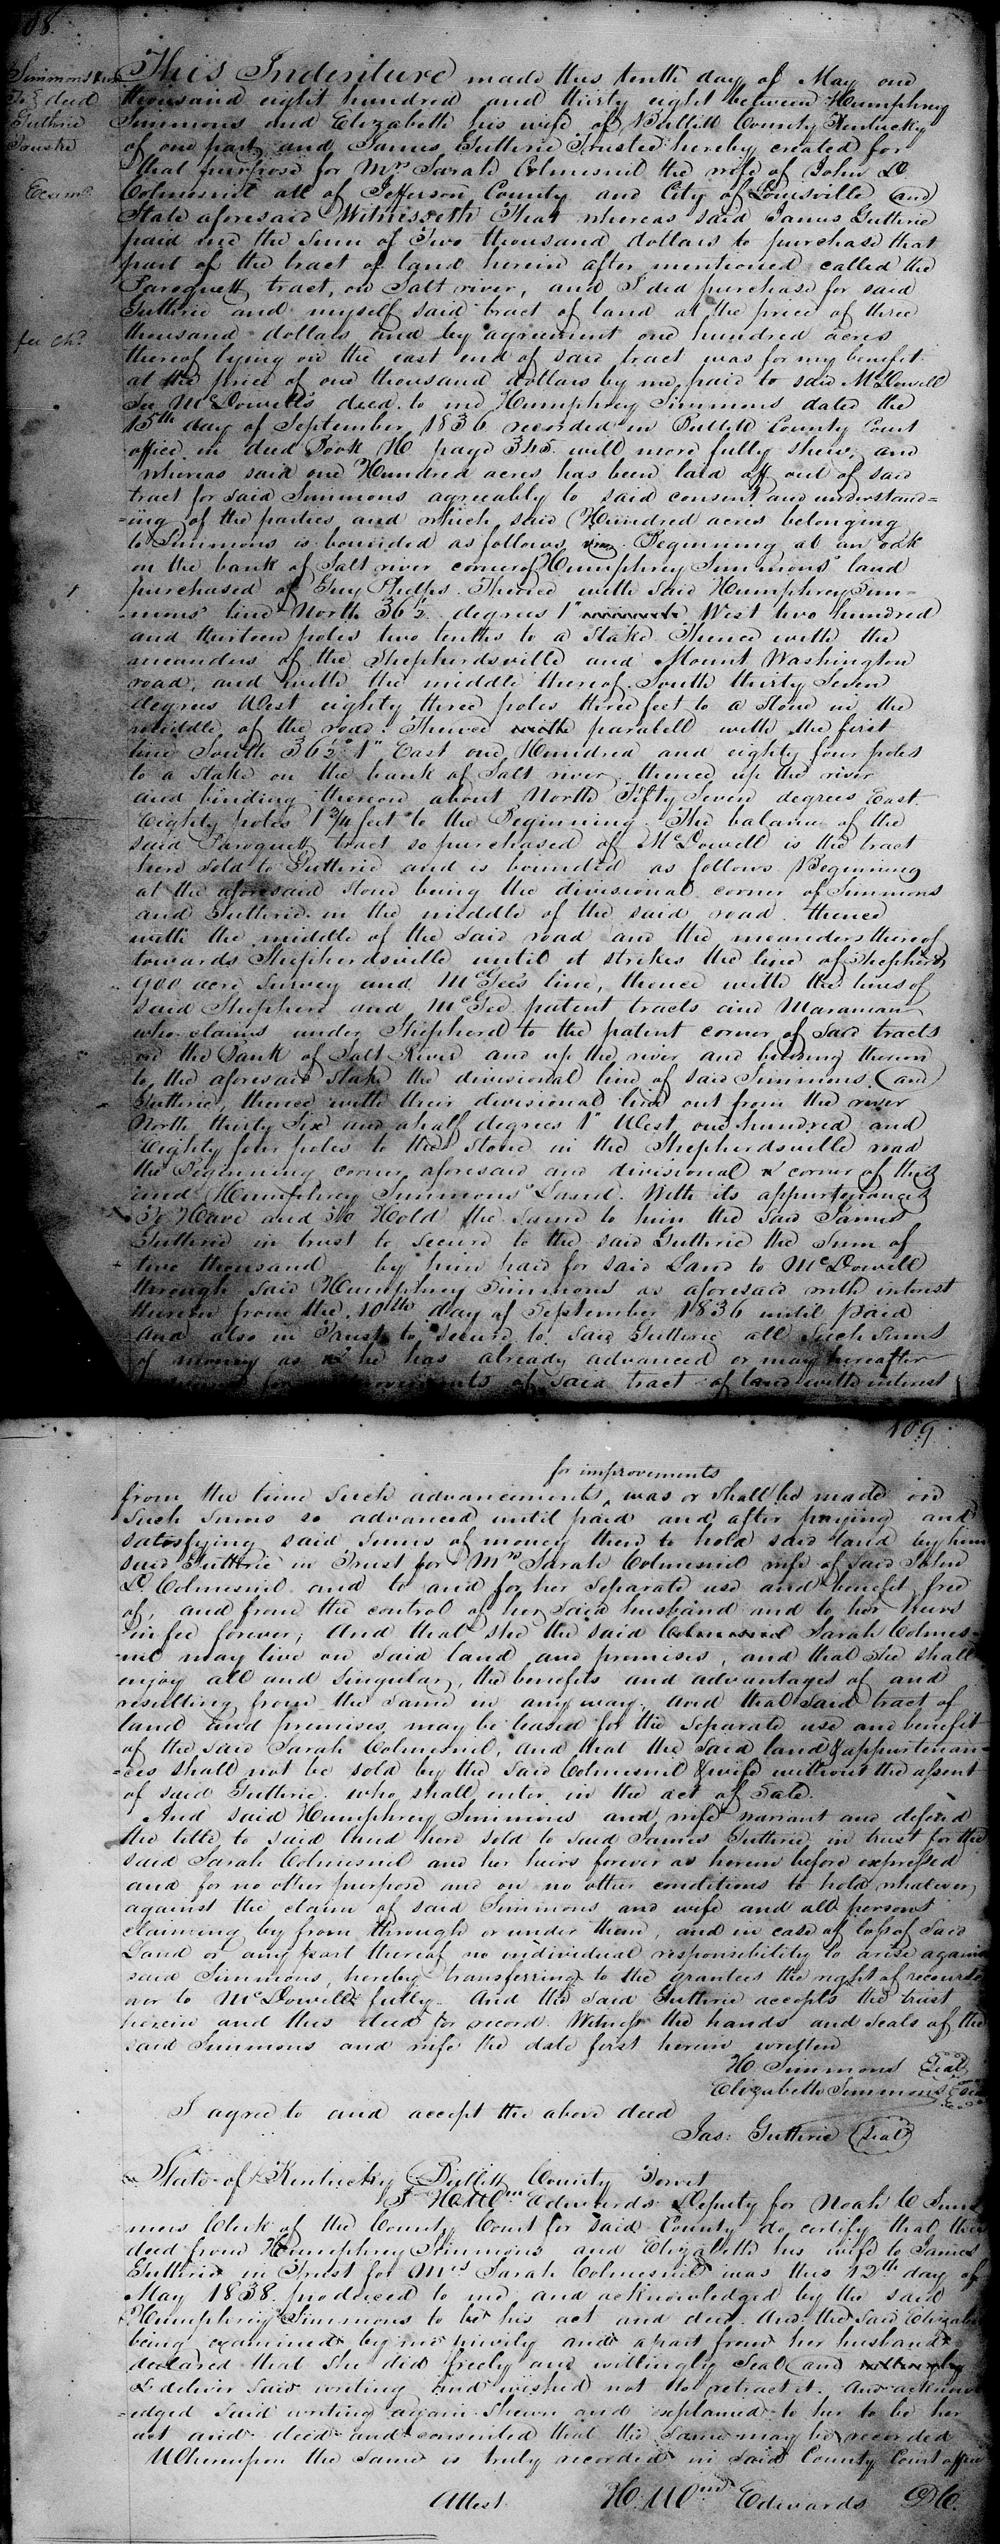 108
Simmons & wife
To } deed
Guthrie
Trustee
Exam.d
fee chd
This Indenture made this tenth day of May one
thousand eight hundred and thirty eight between Humphrey
Simmons and Elizabeth his wife of Bullitt County Kentucky
of one part, and James Guthrie Trustee hereby created for
that purpose for Mrs Sarah Colmesnil the wife of John D.
Colmesnil all of Jefferson County and City of Louisville and
State aforesaid Witnesseth That whereas said James Guthrie
paid me the sum of Two thousand dollars to purchase that
part of the tract of land herein after mentioned called the
Paroquett tract, on Salt river, and I did purchase for said
Guthrie and myself said tract of land at the price of three
thousand dollars and by agreement one hundred acres
thereof lying on the east end of said tract was for my benefit
at the price of one thousand dollars by me paid to said McDowell
See McDowell's deed to me Humphrey Simmons dated the
15th day of September 1836 recorded in Bullitt County Court
office in deed Book H page 345 will more fully shew, and
whereas said one Hundred acres has been laid off out of said
tract for said Simmons agreeably to said consent and understand=
=ing of the parties and which said Hundred acres belonging
to Simmons is bounded as follows viz. Beginning at an oak
on the bank of Salt river corner of Humphrey Simmons' land
purchased of Guy Phelps. Thence with said Humphrey Sim-
-mons' line North 36½ degrees 1" West two hundred
and thirteen poles two tenths to a Stake. Thence with the
meanders of the Shepherdsville and Mount Washington
road, and with the middle thereof South thirty Seven
degrees West eighty three poles three feet to a stone in the
middle of the road. Thence with parallell with the first
line South 36½° 1" East one Hundred and eighty four poles
to a stake on the bank of Salt river, thence up the river
and binding thereon about North Fifty Seven degrees East
Eighty poles 1¾ feet to the Beginning. The balance of the
said Paroquett tract so purchased of McDowell is the tract
here sold to Guthrie and is bounded as follows Beginning
at the aforesaid stone being the divisional corner of Simmons
and Guthrie in the middle of the said road thence
with the middle of the said road and the meanders thereof
towards Shepherdsville until it strikes the line of Shepherds
900 acre survey and McGee's line, thence with the lines of
said Shepherd and McGee patent tracts and Maraman
who claims under Shepherd to the patent corner of said tracts
on the Bank of Salt River and up the river and binding thereon
to the aforesaid stake the divisional line of said Simmons and
Guthrie, thence with their divisional line out from the river
North thirty Six and a half degrees 1" West one hundred and
Eighty four poles to the stone in the Shepherdsville road
the Beginning corner aforesaid and divisional corner of this
and Humphrey Simmons' Land. With its appurtenances
To Have and To Hold the same to him the said James
Guthrie in trust to secure to the said Guthrie the Sum of
two thousand by him paid for said Land to McDowell
through said Humphrey Simmons as aforesaid with interest
thereon from the 10th day of September 1836 until paid
And also in Trust to secure to said Guthrie all such sums
of money as he has already advanced or may hereafter
for improvements of said tract of land with interest
109
for improvements
from the time such advancements, was or shall be made on
such sums so advanced until paid and after paying and
satisfying said sums of money then to hold said land by him
said Guthrie in Trust for Mrs Sarah Colmesnil wife of said John
D Colmesnil and to and for her separate use and benefit free
of, and from the control of her said husband and to her heirs
in fee forever; And that she the said Colmesnil Sarah Colmes-
nil may live on said land and premises, and that she shall
enjoy all and singular, the benefits and advantages of and
resulting from the same in any way, and that said tract of
land and premises, may be leased for the separate use and benefit
of the said Sarah Colmesnil, and that the said land & appurtenan-
=ces shall not be sold by the said Colmesnil & wife without the assent
of said Guthrie who shall enter in the act of Sale.
And said Humphrey Simmons and wife warrant and defend
the title to said land here sold to said James Guthrie in trust for the
said Sarah Colmesnil and her heirs forever as herein before expressed
and for no other purpose and on no other conditions to hold whatever,
against the claim of said Simmons and wife and all persons
claiming by from through or under them, and in case of loss of said
Land or any part thereof no individual responsibility to arise against
said Simmons, hereby transferring to the grantees the right of recourse
over to McDowell fully. And the said Guthrie accepts the trust
herein and this deed for record. Witness the hands and seals of the
said Simmons and wife the date first herein written
H. Simmons (Seal)
Elizabeth Simmons (Seal)
I agree to and accept the above deed
Jas: Guthrie (Seal)
State of Kentucky Bullitt County Towit
I H. Edwards Deputy for Noah C Sum
mers Clerk of the County Court for said County do certify that this
deed from Humphrey Simmons and Elizabeth his wife to James
Guthrie in Trust for Mrs Sarah Colmesnil was this 12th day of
May 1838 produced to me and acknowledged by the said
Humphrey Simmons to be his act and deed. And the said Elizabeth
being examined by me privily and apart from her husband
declared that she did freely and willingly Seal and
& deliver said writing and wished not to retract it. And acknowl
=edged said writing again shewn and explained to her to be her
act and deed and consented that the same may be recorded
Whereupon the same is truly recorded in said County Court office
Attest H. Edwards DC.